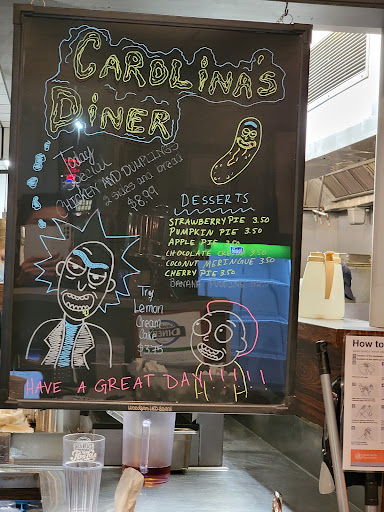 CAROLINA'S
DINER
Today
CHICKEN AND DUMPLINGS
2 sides and bread
$8.99
DESSERTS
STRAWBERRY PIE 3.50
PUMPKIN PIE 3.50
APPLE PIE 3.50
CHOCOLATE CREAM 3.50
COCONUT MERINGUE 3.50
CHERRY PIE 3.50
BANANA PUDDING
Try
Lemon
Cream
Cake
HAVE A GREAT DAY!!!!!!
How to